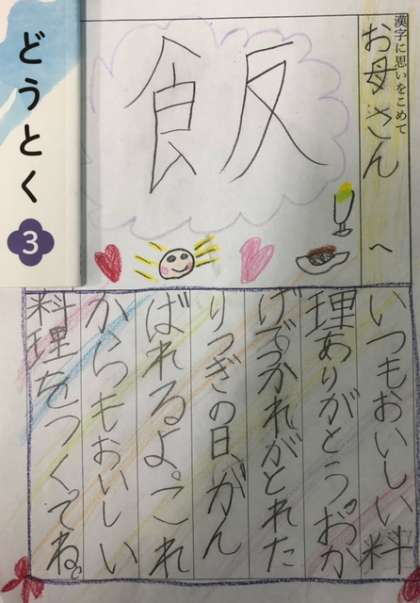 漢字に思いをこめて
お母さん へ
飯
どうとく
3
いつもおいしい料
理ありがとう。おか
げでつかれがとれた
りつぎの日、がん
ばれるよ。これ
からもおいしい
料理をつくてね。